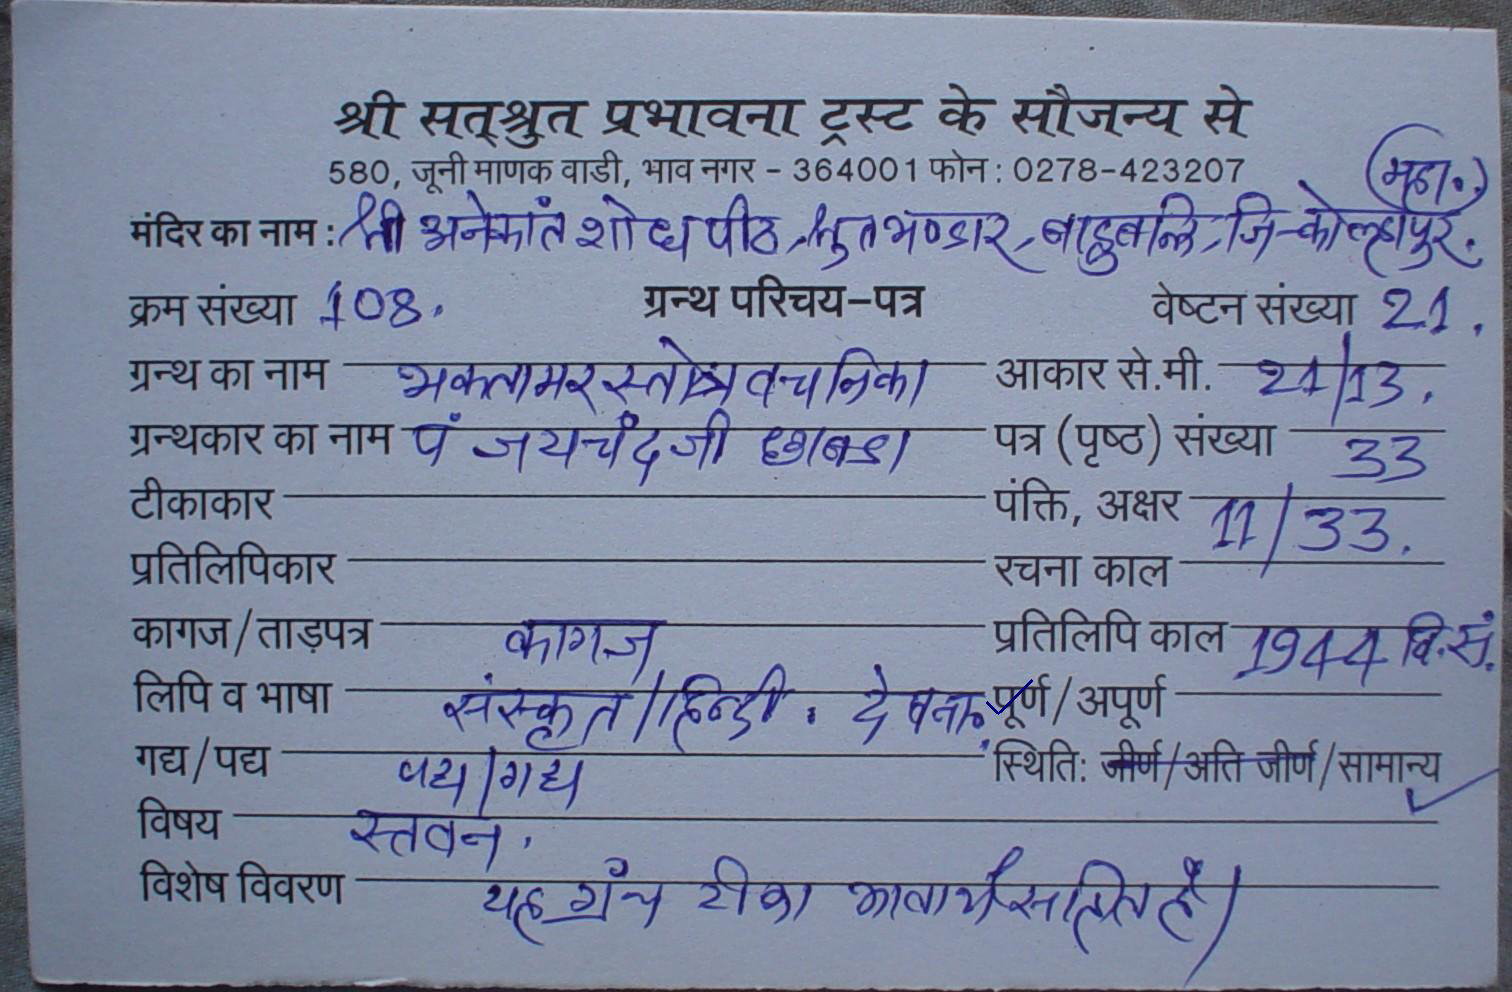 श्री सत्श्रुत प्रभावना ट्रस्ट के सौजन्य से
580, जूनी माणक वाडी, भाव नगर - 364001 फोन : 0278-423207
(महा.)
मंदिर का नाम : श्री अनेकांत शोध पीठ, श्रुतभण्डार, बाहुबलि, जि-कोल्हापुर.
क्रम संख्या 108. ग्रन्थ परिचय-पत्र वेष्टन संख्या 21.
ग्रन्थ का नाम भक्तामर स्तोत्र वचनिका आकार से.मी. 21/13.
ग्रन्थकार का नाम पं जयचंदजी छाबडा पत्र (पृष्ठ) संख्या 33
टीकाकार पंक्ति, अक्षर 11/33.
प्रतिलिपिकार रचना काल
कागज/ताड़पत्र कागज प्रतिलिपि काल 1944 वि.सं.
लिपि व भाषा संस्कृत/हिन्दी. देवना. पूर्ण/अपूर्ण
गद्य/पद्य पद्य/गद्य स्थिति: जीर्ण/अति जीर्ण/सामान्य
विषय स्तवन.
विशेष विवरण यह ग्रंथ टीका भावार्थ सहित है।